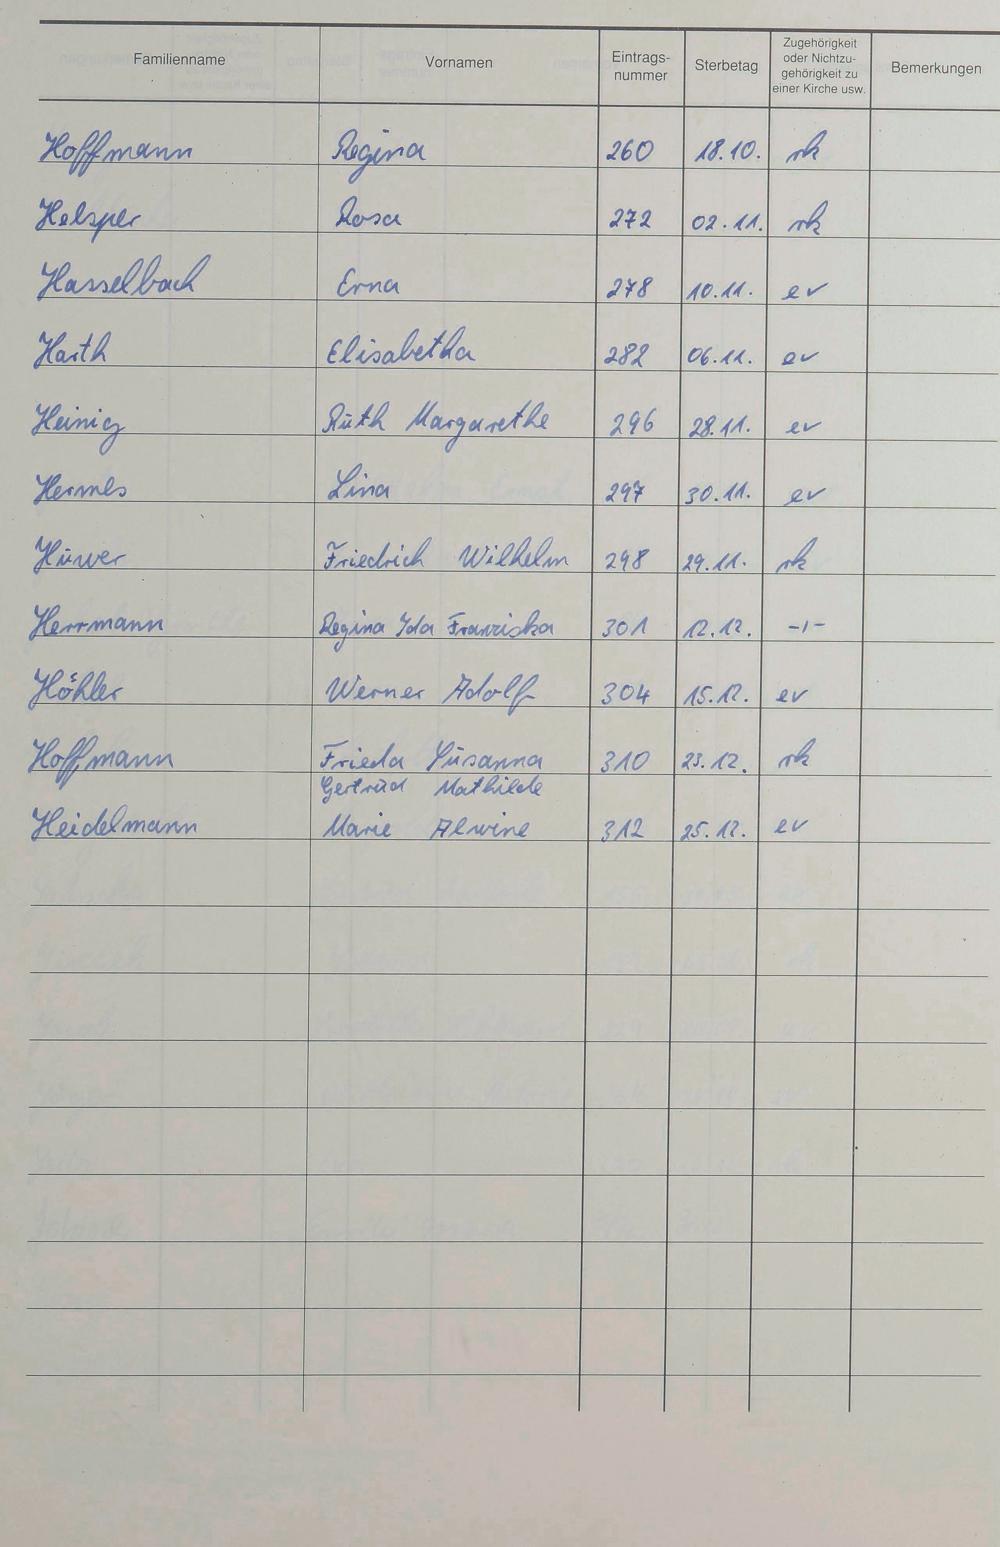 Familienname Vornamen Eintrags-nummer Sterbetag Zugehörigkeit oder Nichtzu-gehörigkeit zu einer Kirche usw. Bemerkungen
Hoffmann Regina 260 18.10. rk
Helsper Rosa 272 02.11. rk
Hasselbach Erna 278 10.11. ev
Harth Elisabetha 282 06.11. ev
Heinig Ruth Margarethe 296 28.11. ev
Hermes Lina 297 30.11. ev
Huwer Friedrich Wilhelm 298 29.11. rk
Herrmann Regina Ida Franziska 301 12.12. -1-
Höhler Werner Adolf 304 15.12. ev
Hoffmann Frieda Susanna 310 23.12. rk
Gertrud Mathilde
Heidelmann Marie Alwine 312 25.12. ev